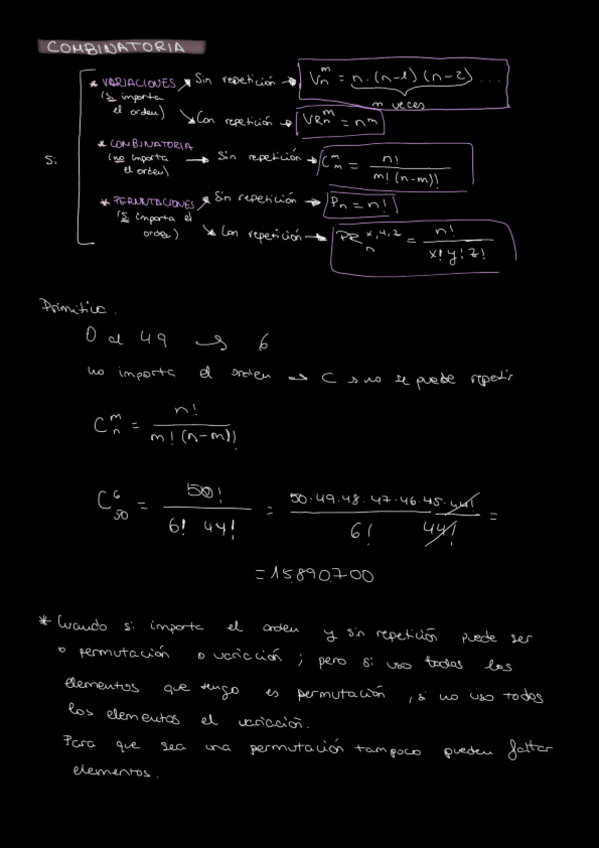 COMBINATORIA
* VARIACIONES (Si importa el orden)
Sin repetición → V_n^m = n·(n-1)(n-2)...
m veces
Con repetición → VR_n^m = n^m
Si
* COMBINATORIA (no importa el orden) → Sin repetición → C_m^m = n! / m!(n-m)!
* PERMUTACIONES (Si importa el orden)
Sin repetición → P_n = n!
Con repetición → PR_n^{x,y,z} = n! / x! y! z!
Primitiva.
0 al 49 → 6
no importa el orden → C → no se puede repetir
C_n^m = n! / m!(n-m)!
C_50^6 = 50! / 6! 44! = 50·49·48·47·46·45·44! / 6! 44! =
= 15.890.700
* Cuando si importa el orden y sin repetición puede ser
o permutación o variación; pero si uso todos los
elementos que tengo es permutación, si no uso todos
los elementos el variación.
Para que sea una permutación tampoco pueden faltar
elementos.